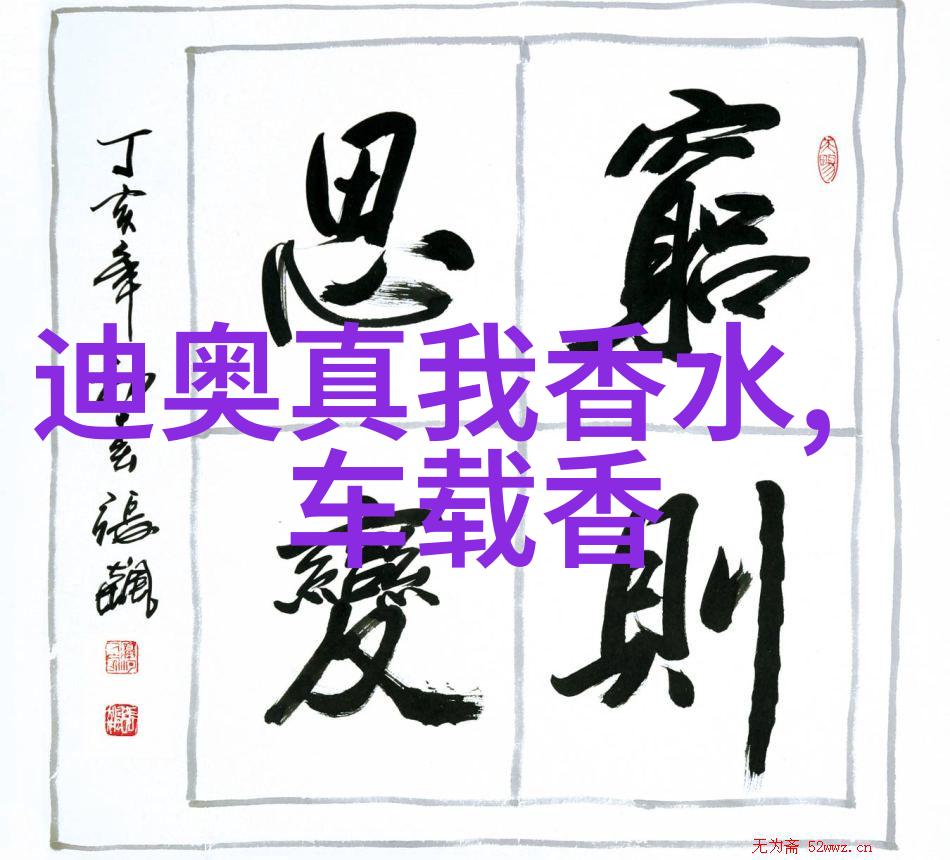 窮則
思變
丁亥年
張飆
迪奥真我香水，
车载香
无为斋 52wwz.cn